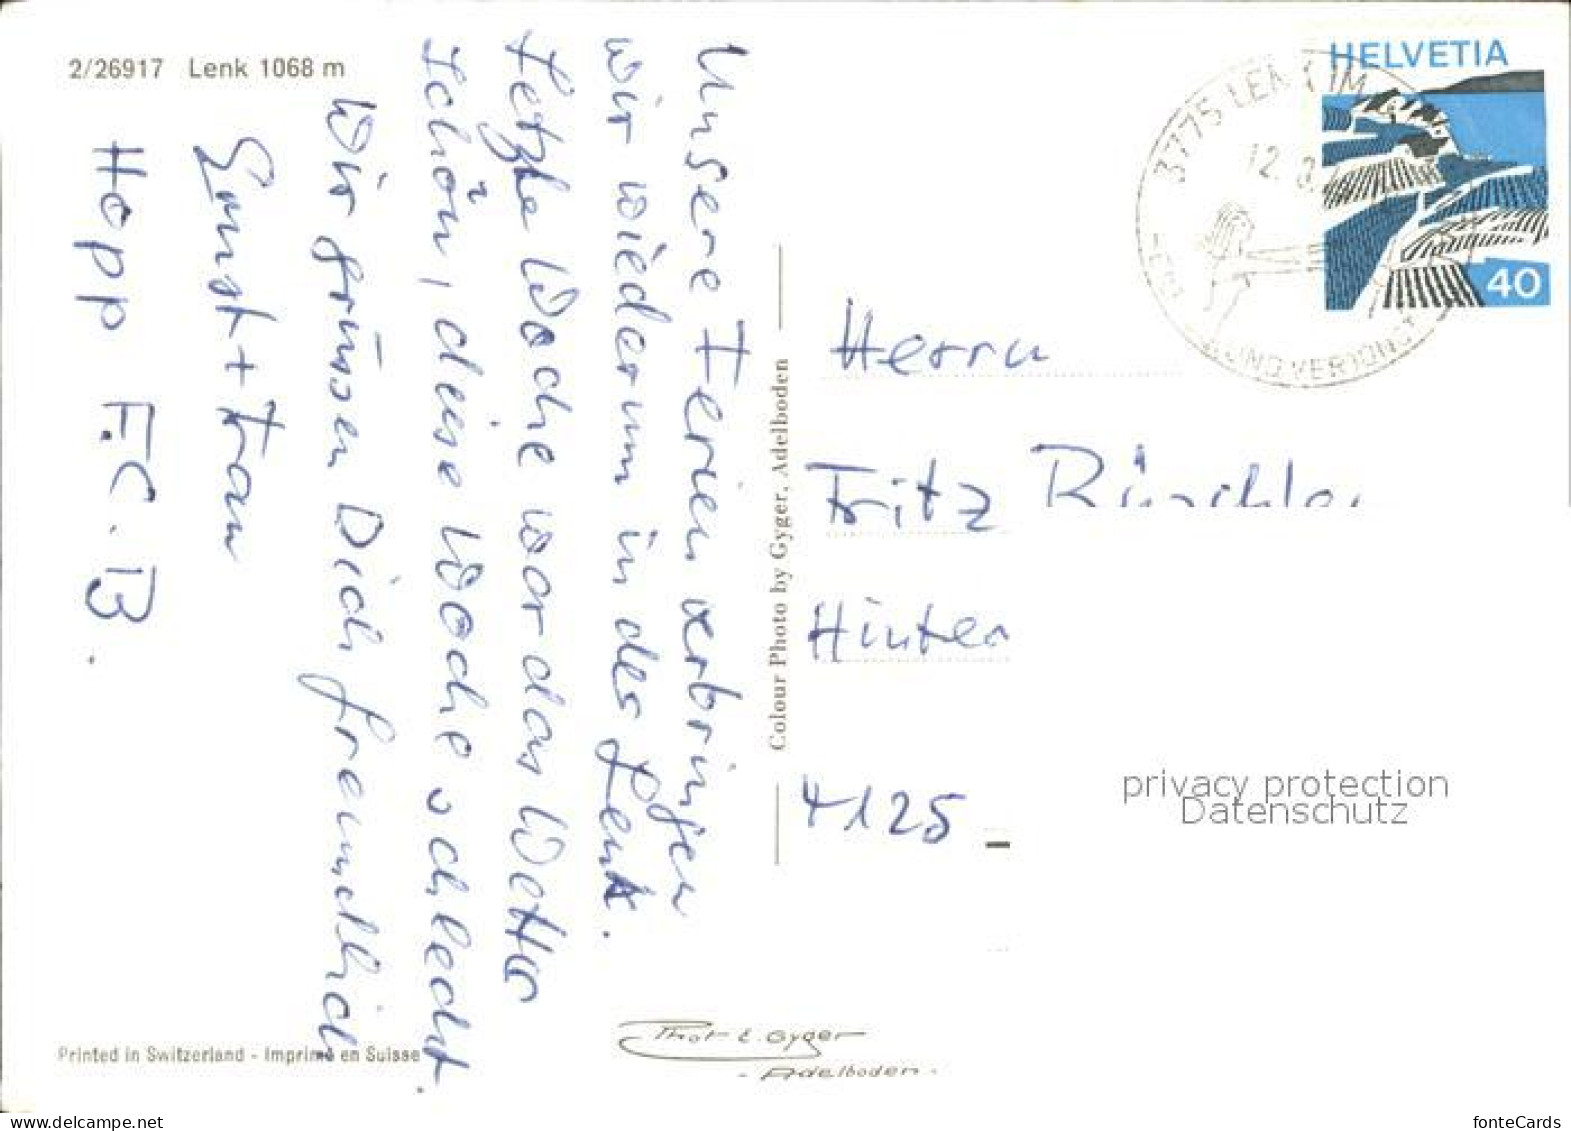 2/26917 Lenk 1068 m
Unsere Ferien verbringen
wir wiederum in der Lenk.
Letzte Woche war das Wetter
schön, diese Woche schlecht.
Wir grüssen Dich freundlich
Ernst + Frau
Hopp F.C.B.
Printed in Switzerland - Imprimé en Suisse
Colour Photo by Gyger, Adelboden
Phot E. Gyger
- Adelboden -
HELVETIA
40
3775 LENK IM
12. 8.
UND VERJÜNGT
Herrn
Fritz
Hinter
4125
privacy protection
Datenschutz
www.delcampe.net
fonteCards